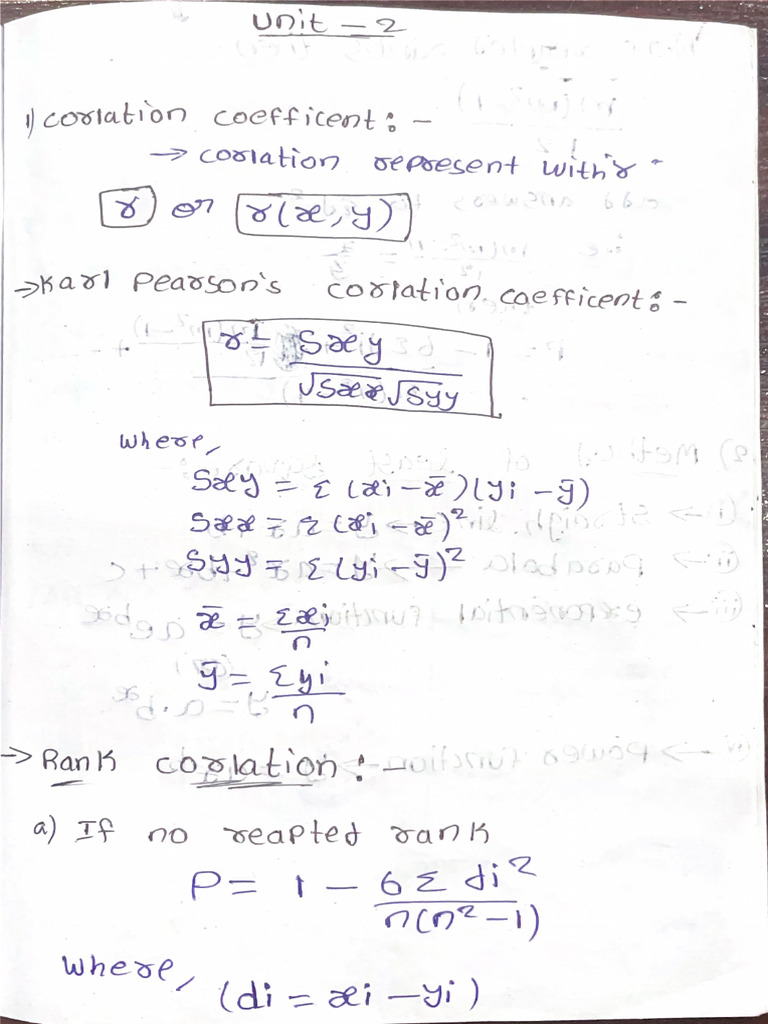 Unit - 2
1) corlation coefficent : -
→ corlation represent with 'r'
r or r(x, y)
→ Karl Pearson's corlation coefficent : -
r = Sxy / √Sxx √Syy
where,
Sxy = Σ (xi - x̄)(yi - ȳ)
Sxx = Σ (xi - x̄)²
Syy = Σ (yi - ȳ)²
x̄ = Σxi / n
ȳ = Σyi / n
→ Rank corlation : -
a) If no reapted rank
P = 1 - 6 Σ di² / n(n² - 1)
where,
(di = xi - yi)